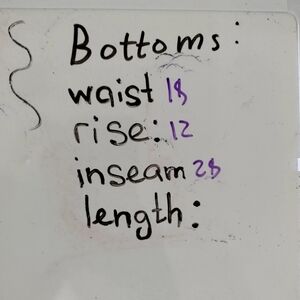 Bottoms:
waist 18
rise: 12
inseam 28
length: